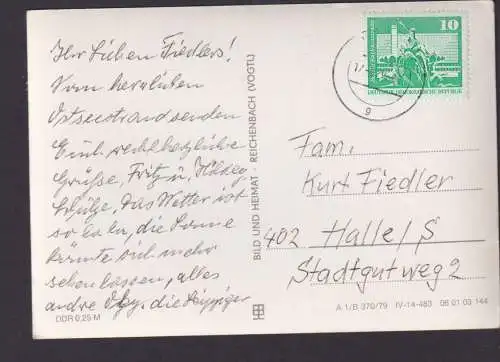 Ihr Lieben Fiedlers!
Vom herrlichen
Ostseestrand senden
Euch recht herzliche
Grüße, Fritz u.
Das Wetter ist
so la la, die Sonne
könnte sich mehr
sehen lassen, alles
andre die
DDR 0,25 M
BILD UND HEIMAT · REICHENBACH (VOGTL)
10
DEUTSCHE DEMOKRATISCHE REPUBLIK
9
Fam.
Kurt Fiedler
402 Halle/S
Stadtgutweg 2
A 1/B 370/79 IV-14-483 06 01 03 144